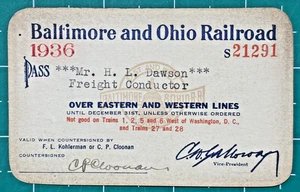 Baltimore and Ohio Railroad
1936
S 21291
PASS ***Mr. H. L. Dawson***
Freight Conductor
OVER EASTERN AND WESTERN LINES
UNTIL DECEMBER 31ST, UNLESS OTHERWISE ORDERED
Not good on Trains 1, 2, 5 and 6 West of Washington, D. C.,
and Trains 27 and 28
VALID WHEN COUNTERSIGNED BY
F. L. Kohlerman or C. P. Cloonan
COUNTERSIGNED
C P Cloonan
Vice-President